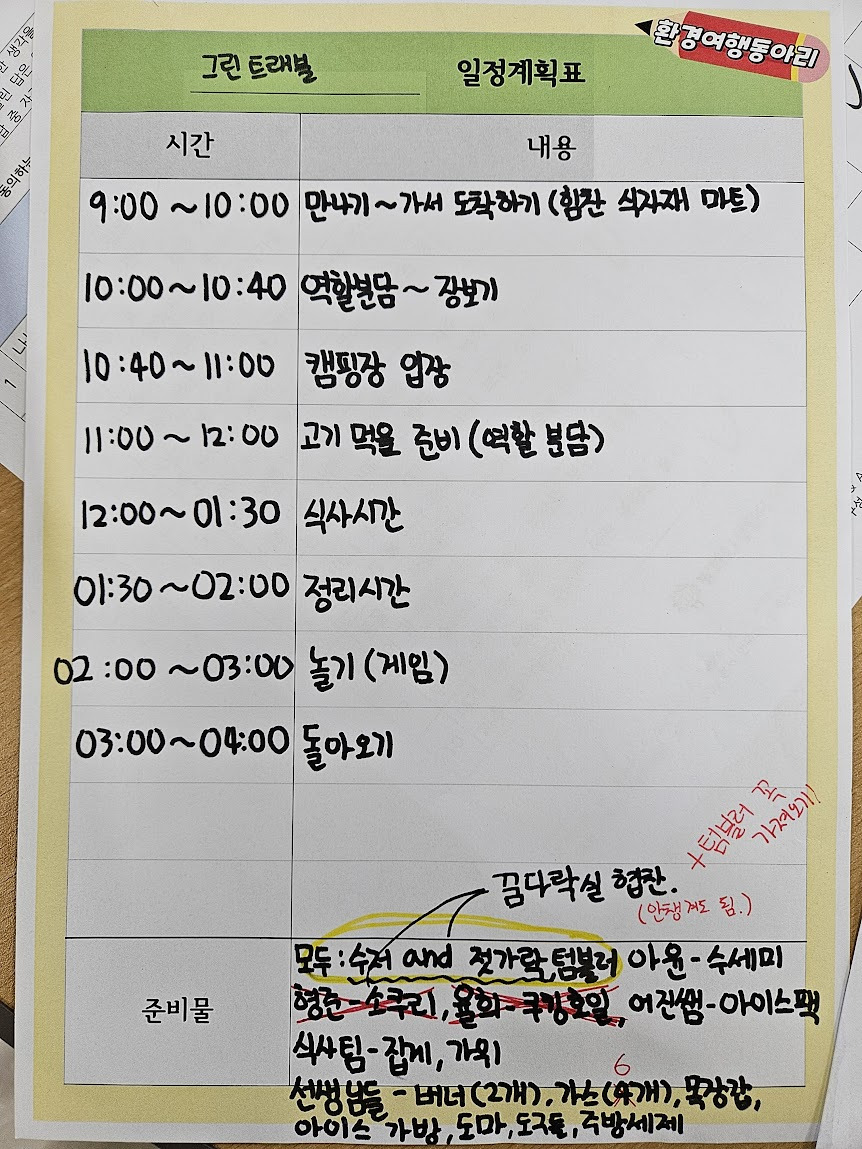 환경여행동아리
그린 트래블 일정계획표
시간 내용
9:00 ~ 10:00 만나기 ~ 가서 도착하기 (힘찬 식자재 마트)
10:00 ~ 10:40 역할분담 ~ 장보기
10:40 ~ 11:00 캠핑장 입장
11:00 ~ 12:00 고기 먹을 준비 (역할 분담)
12:00 ~ 01:30 식사시간
01:30 ~ 02:00 정리시간
02:00 ~ 03:00 놀기 (게임)
03:00 ~ 04:00 돌아오기
+ 텀블러 꼭
가져오기!
꿈다락실 협찬.
(안챙겨도 됨.)
준비물
모두 : 수저 and 젓가락, 텀블러 아윤 - 수세미
형준 - 소쿠리, 율희 - 쿠킹호일, 어진쌤 - 아이스팩
식사팀 - 집게, 가위
6
선생님들 - 버너 (2개), 가스 (4개), 목장갑,
아이스 가방, 도마, 도구들, 주방세제